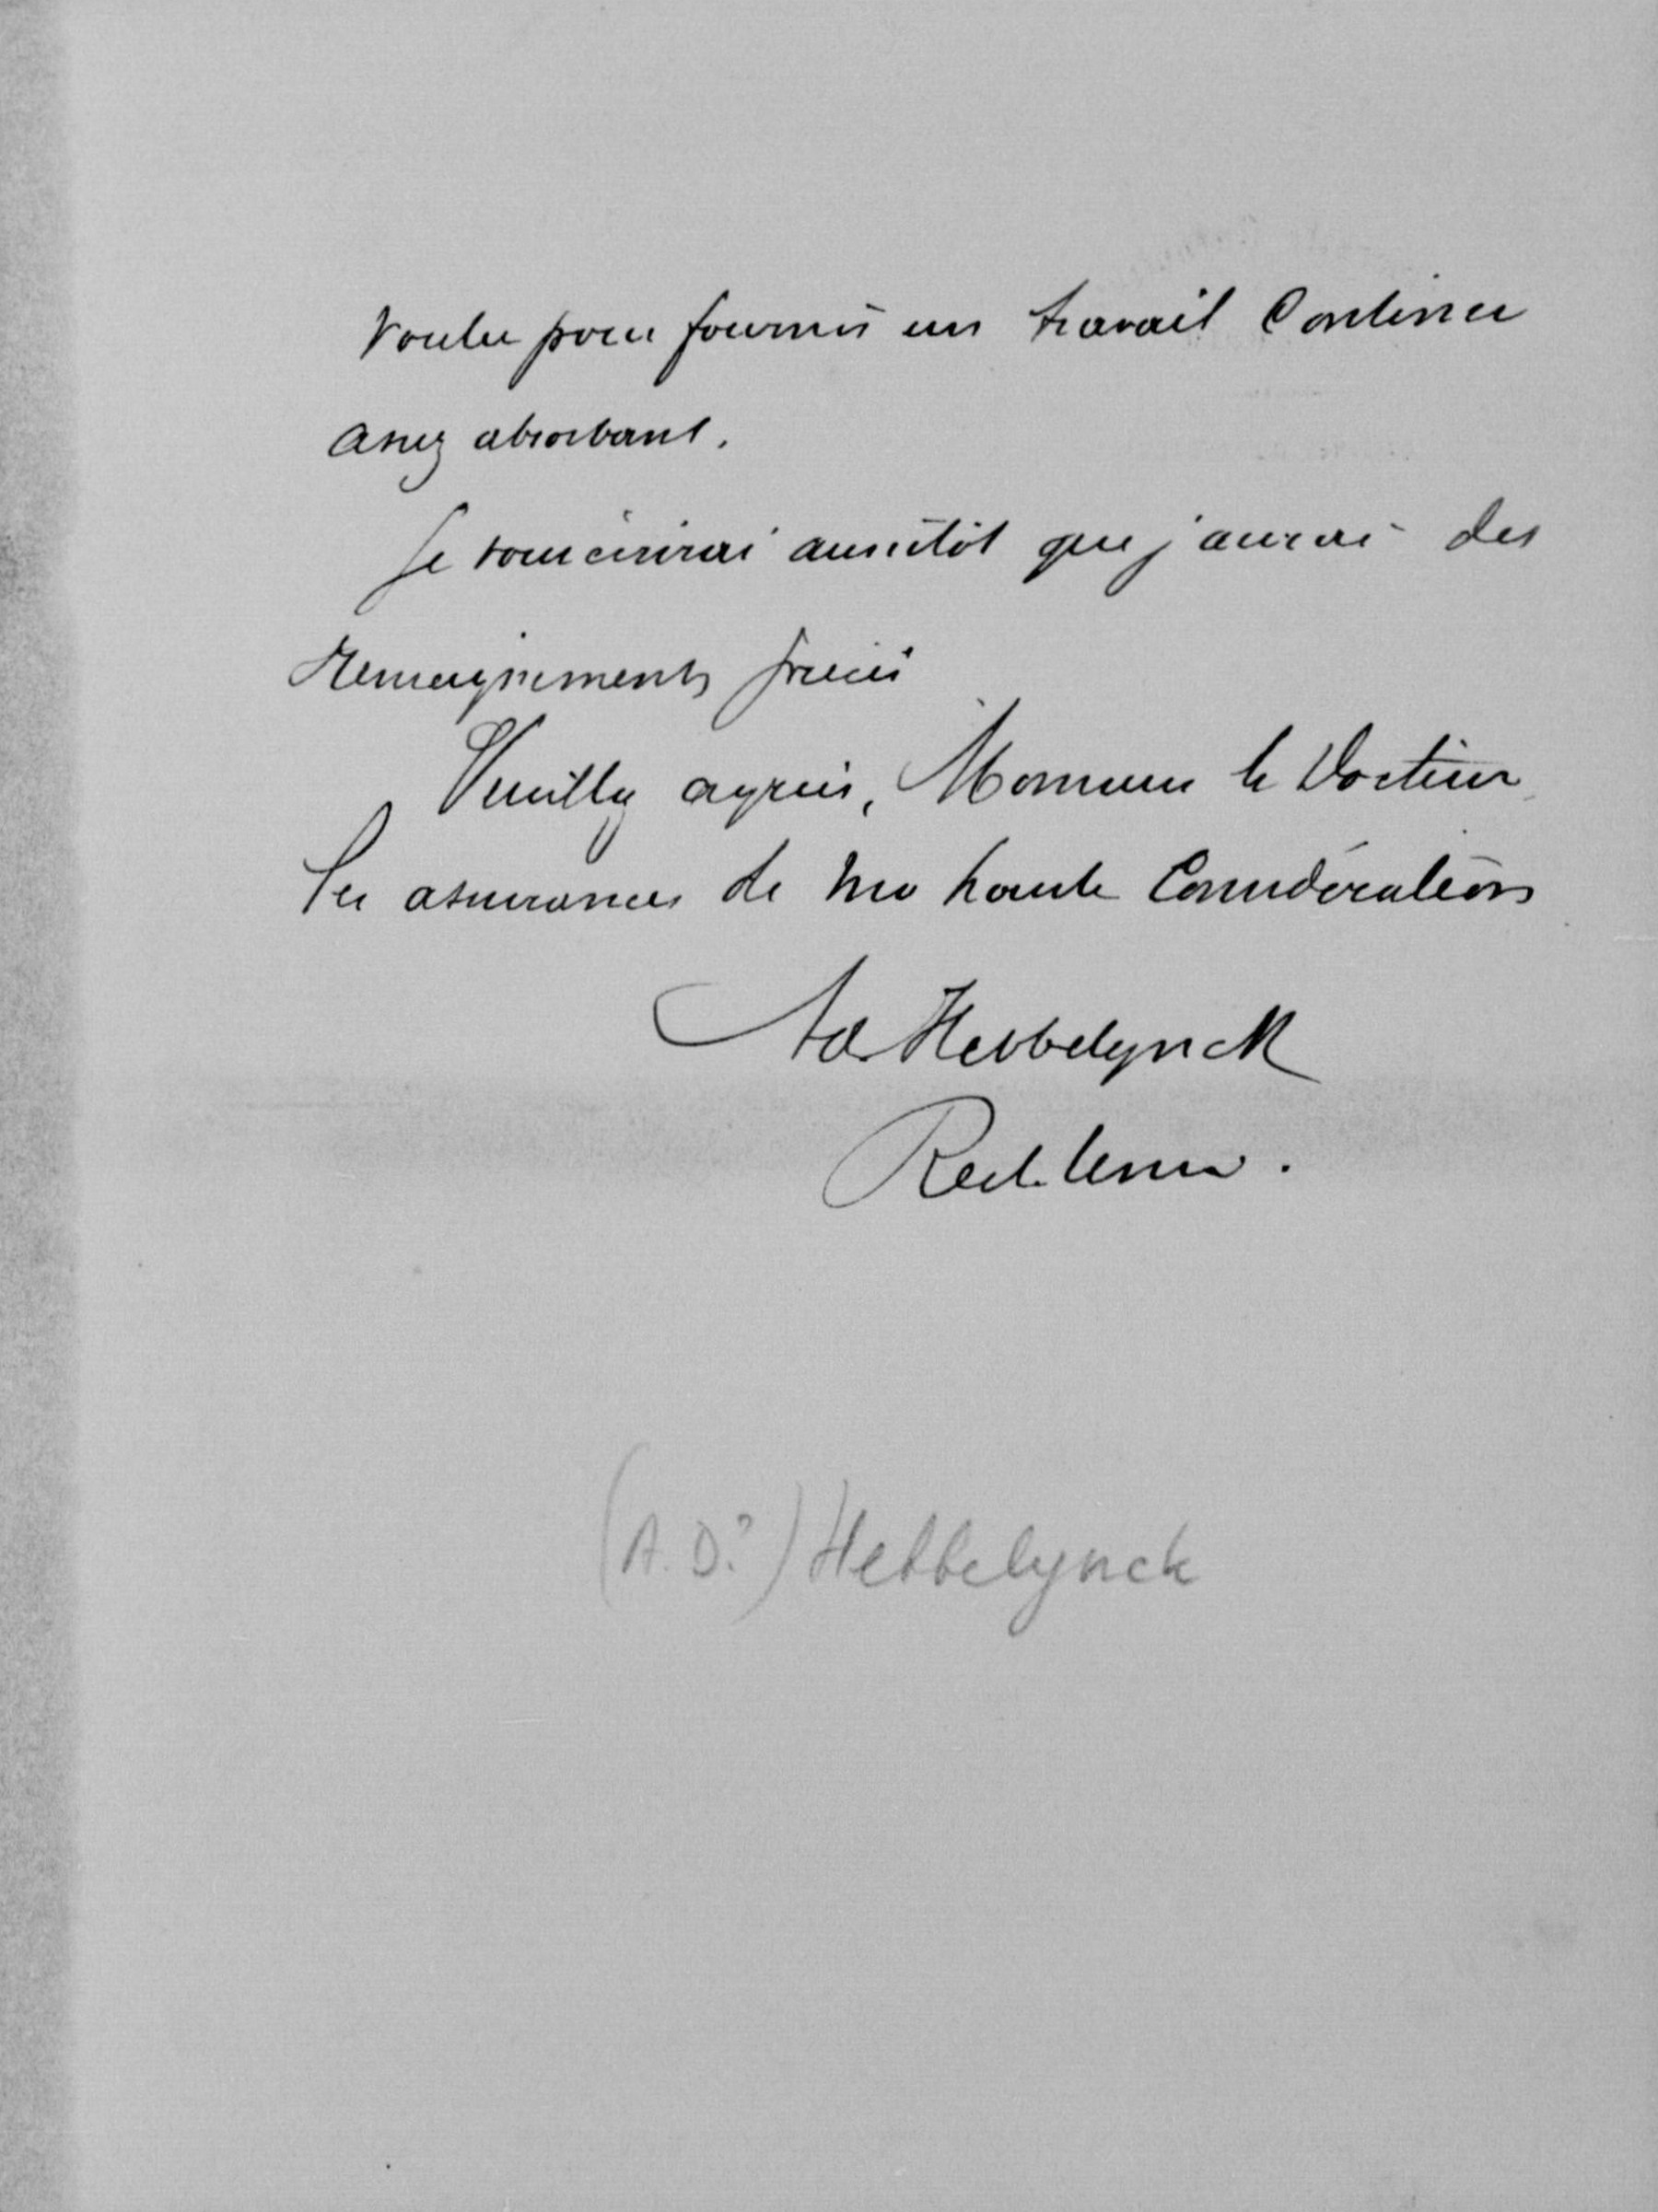 voulu pour fournir un travail continu
assez absorbant.
Je vous écrirai aussitôt que j'aurai des
renseignements précis
Veuillez agréer, Monsieur le Docteur
les assurances de ma haute Considération
Ad Hebbelynck
Rect. Univ.
(A.D.?) Hebbelynck